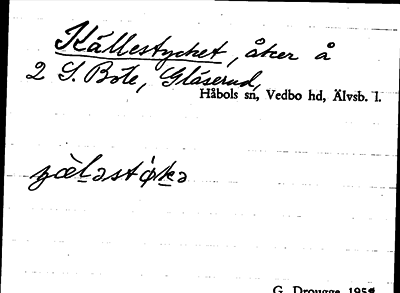 Källestycket, åker å
2 S. Böle, Gläserud,
Håbols sn, Vedbo hd, Älvsb. l.
G. Drougge 195